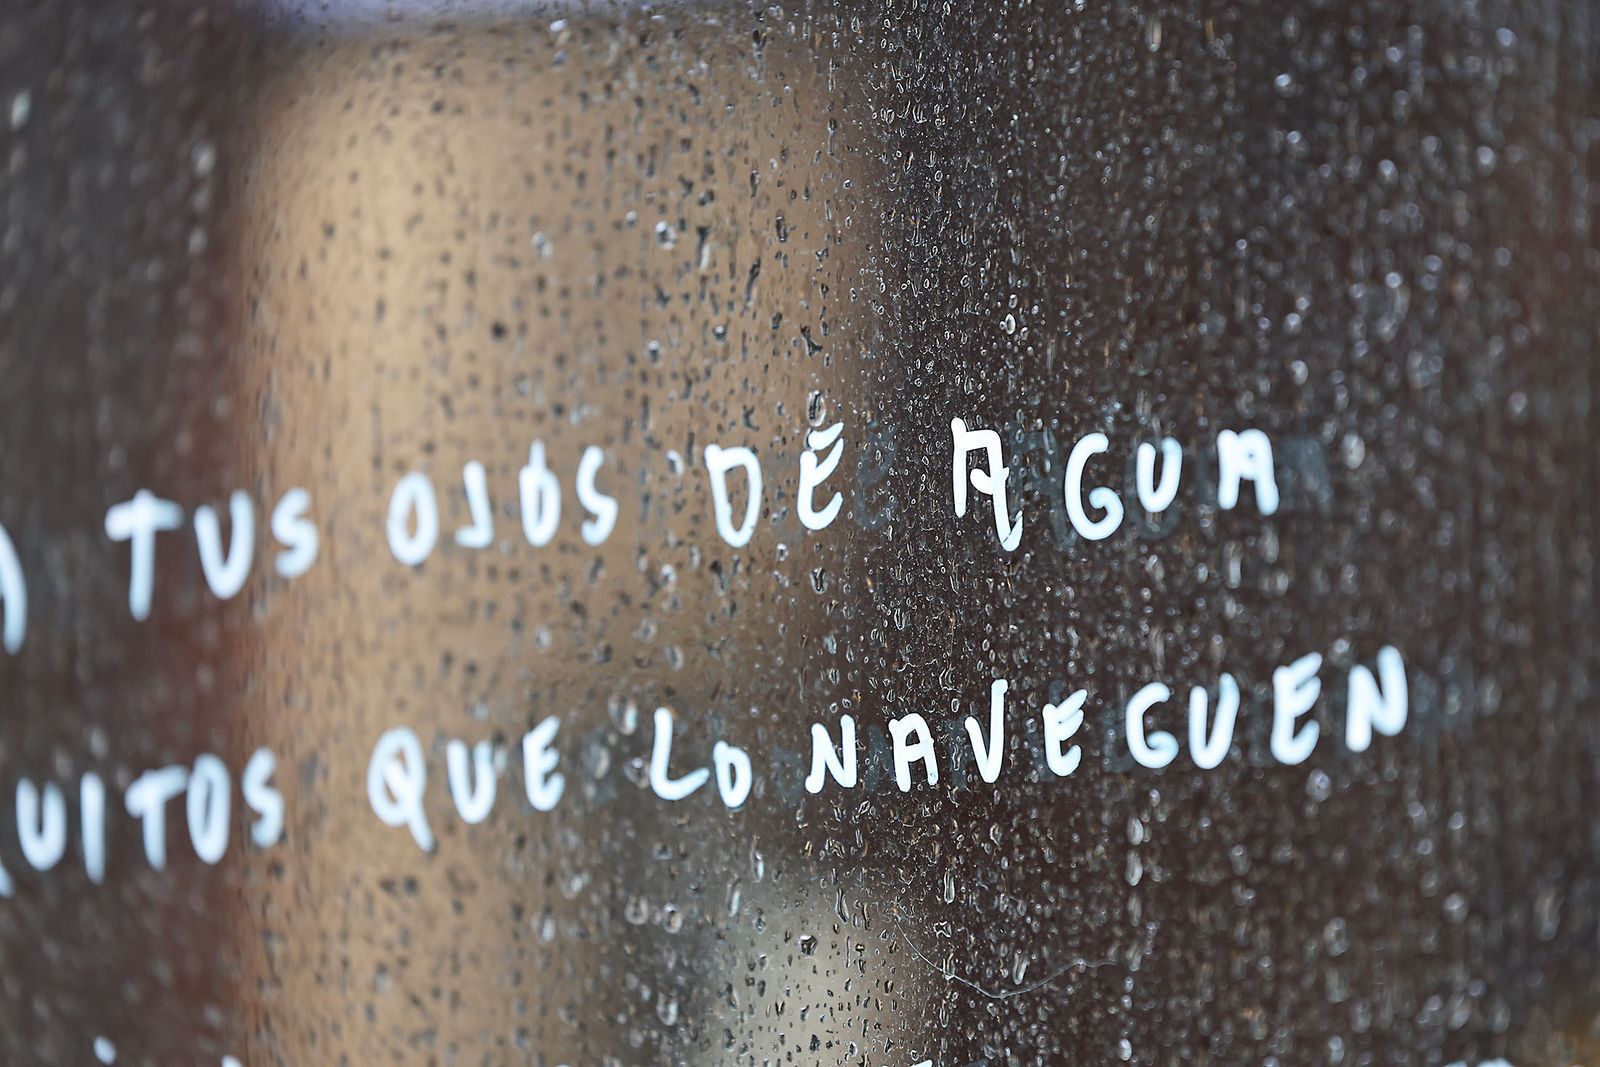 TUS OJOS DE AGUA
QUE LO NAVEGUEN